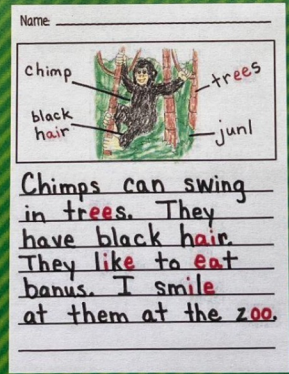 Name
chimp
trees
black
hair
junl
Chimps can swing
in trees. They
have black hair.
They like to eat
banus. I smile
at them at the zoo.